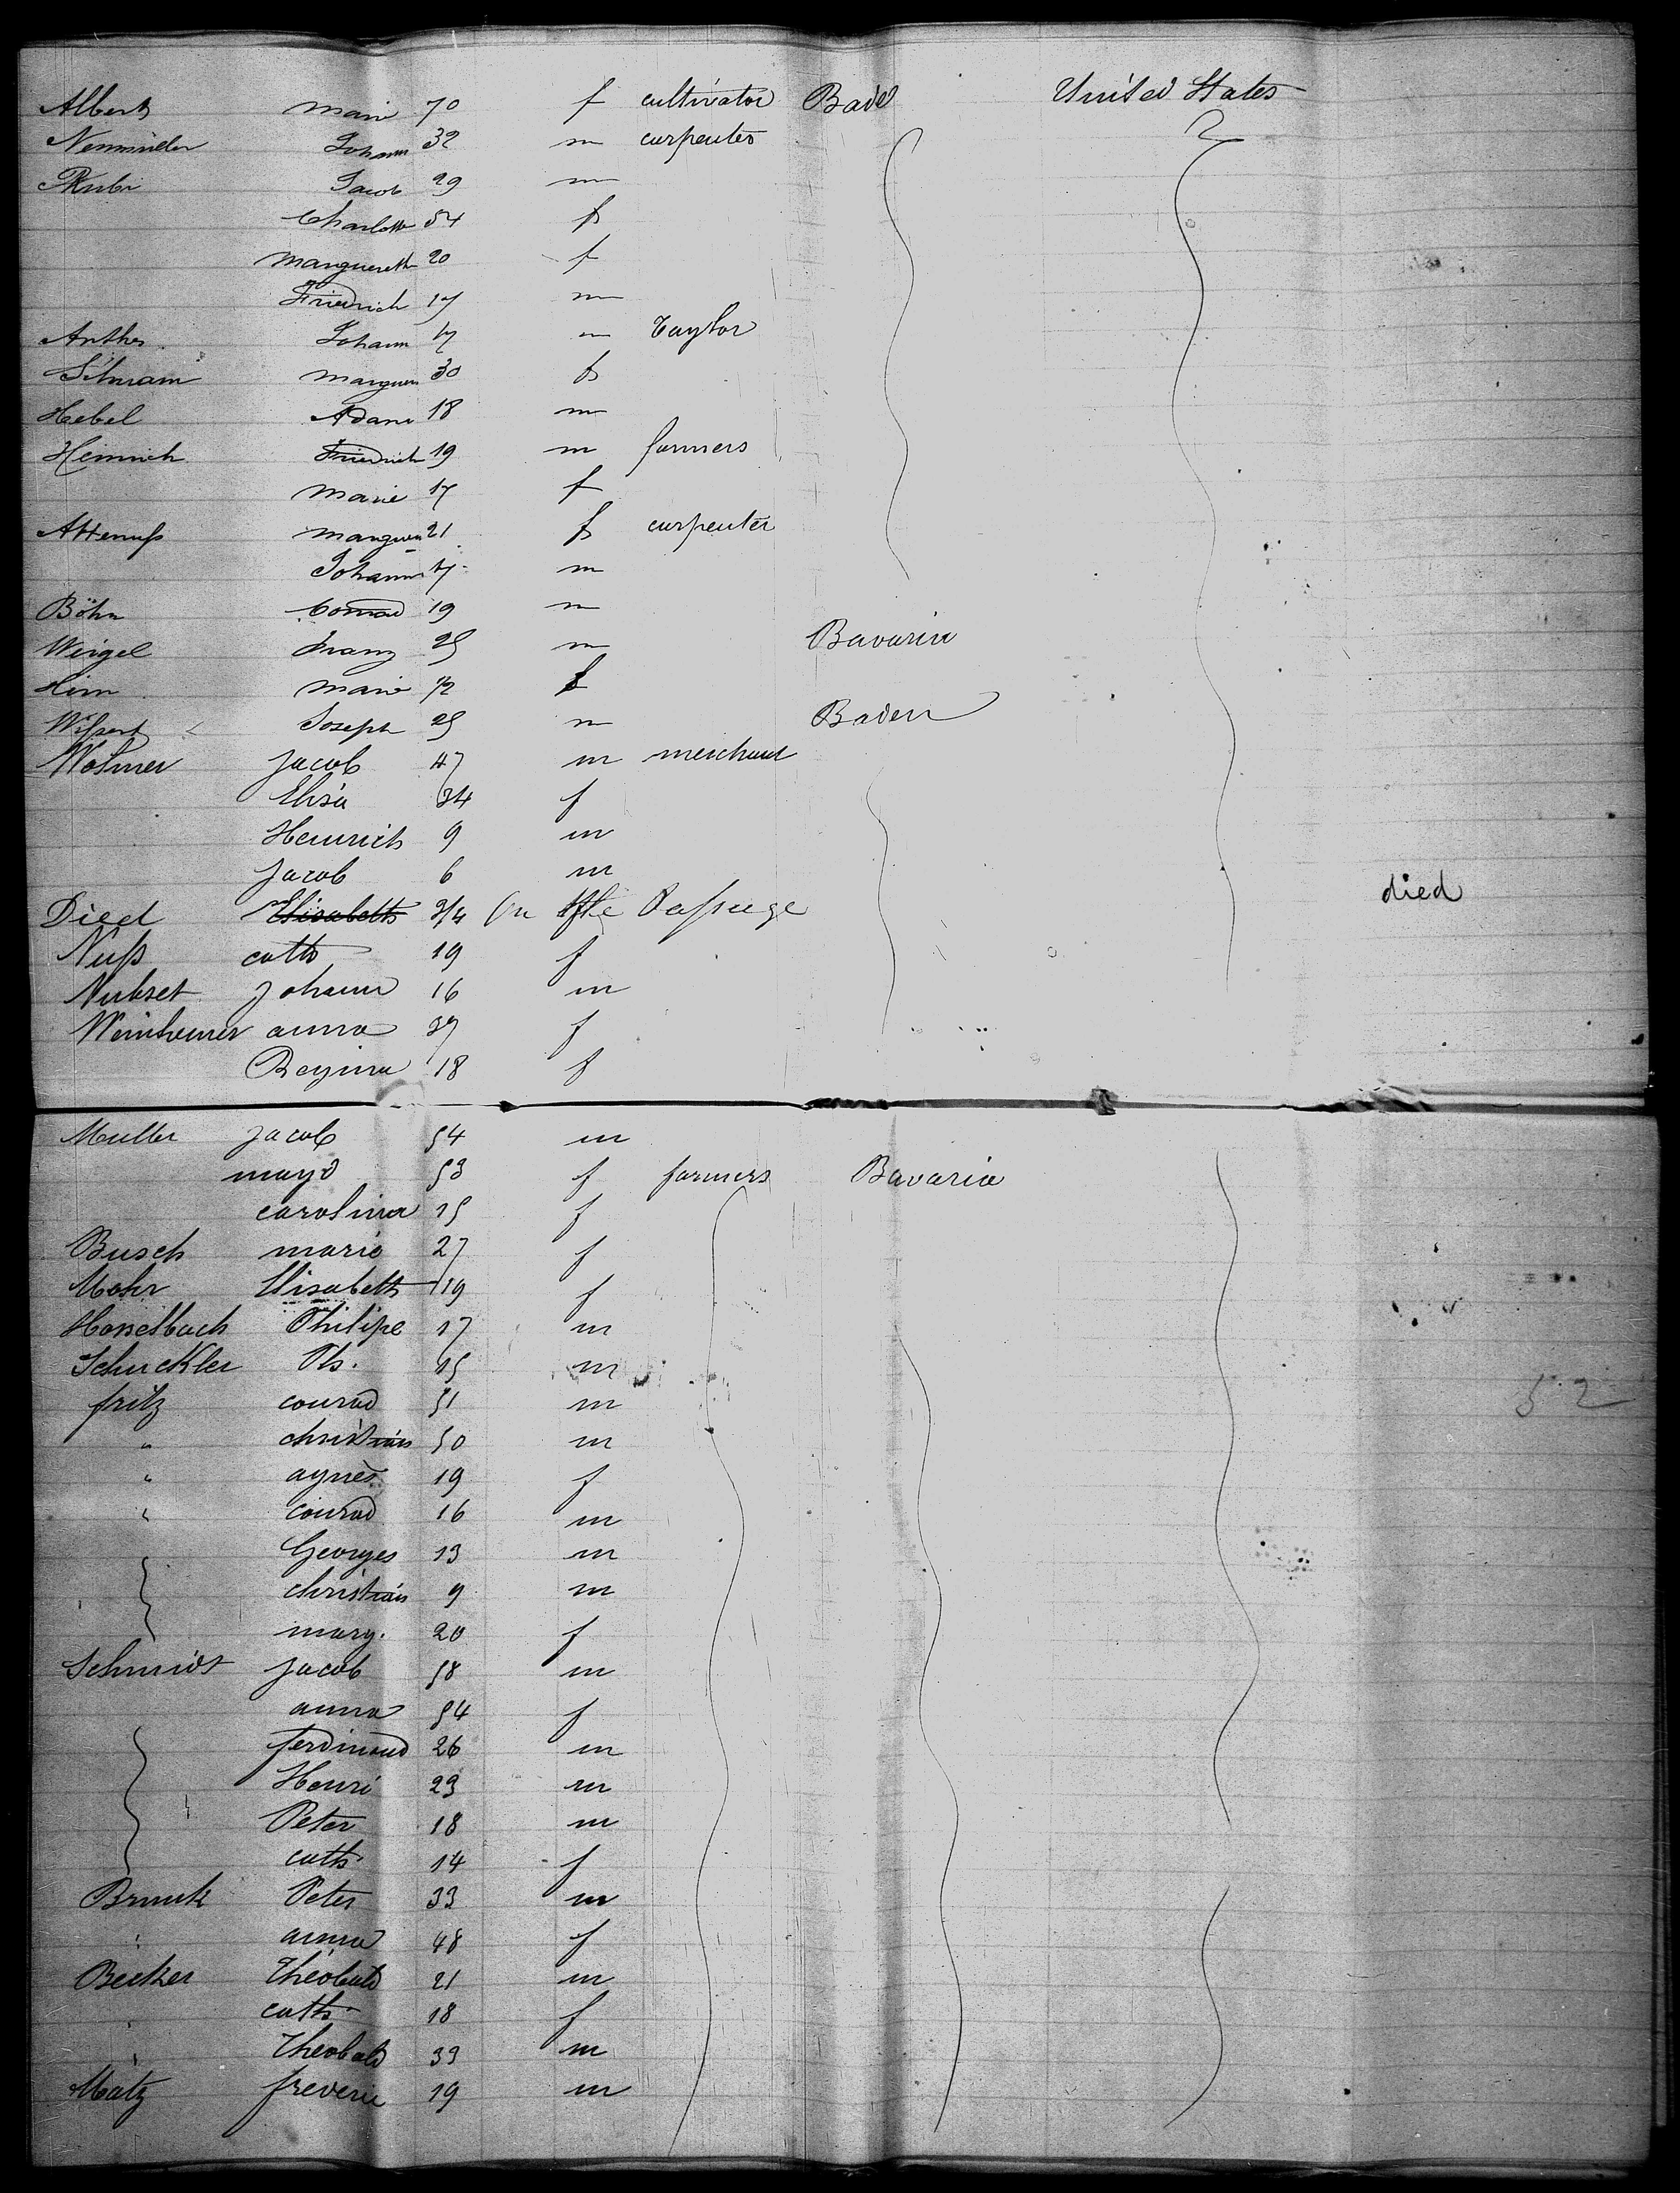 Albert marie 70 f cultivator Bade United States
Johann 32 m carpenter
Jacob 29 m
Charlotte 54 f
marguereth 20 f
Friedrich 17 m
Anthes Johann 17 m Taylor
marguer 30 f
Hebel Adam 18 m
Heinrich Friedrich 19 m farmers
marie 17 f
marguer 21 f carpenter
Johann 17 m
Böhn Conrad 19 m
Weigel Franz 25 m Bavaria
Hirn marie 72 f
Joseph 25 m Baden
Wolmer Jacob 47 m merchant
Elisa 34 f
Heinrich 9 m
Jacob 6 m
Died Elisabeth 3/4 On the Passage died
Nuß cath 19 f
Johann 16 m
Weinheimer anna 37 f
Regina 18 f
Muller Jacob 54 m
53 f farmers Bavaria
carolina 15 f
Busch marie 27 f
Mohr Elisabeth 19 f
Hasselbach Philipe 17 m
Schuckler Ph. 15 m
fritz conrad 51 m 52
" christian 50 m
" agnès 19 f
" conrad 16 m
Georges 13 m
christian 9 m
marg. 20 f
Schmidt Jacob 58 m
anna 54 f
ferdinand 26 m
Henri 23 m
Peter 18 m
cath 14 f
Brunk Peter 33 m
" anna 48 f
Becker Théobald 21 m
" cath 18 f
" Theobald 33 m
Mätz frederic 19 m